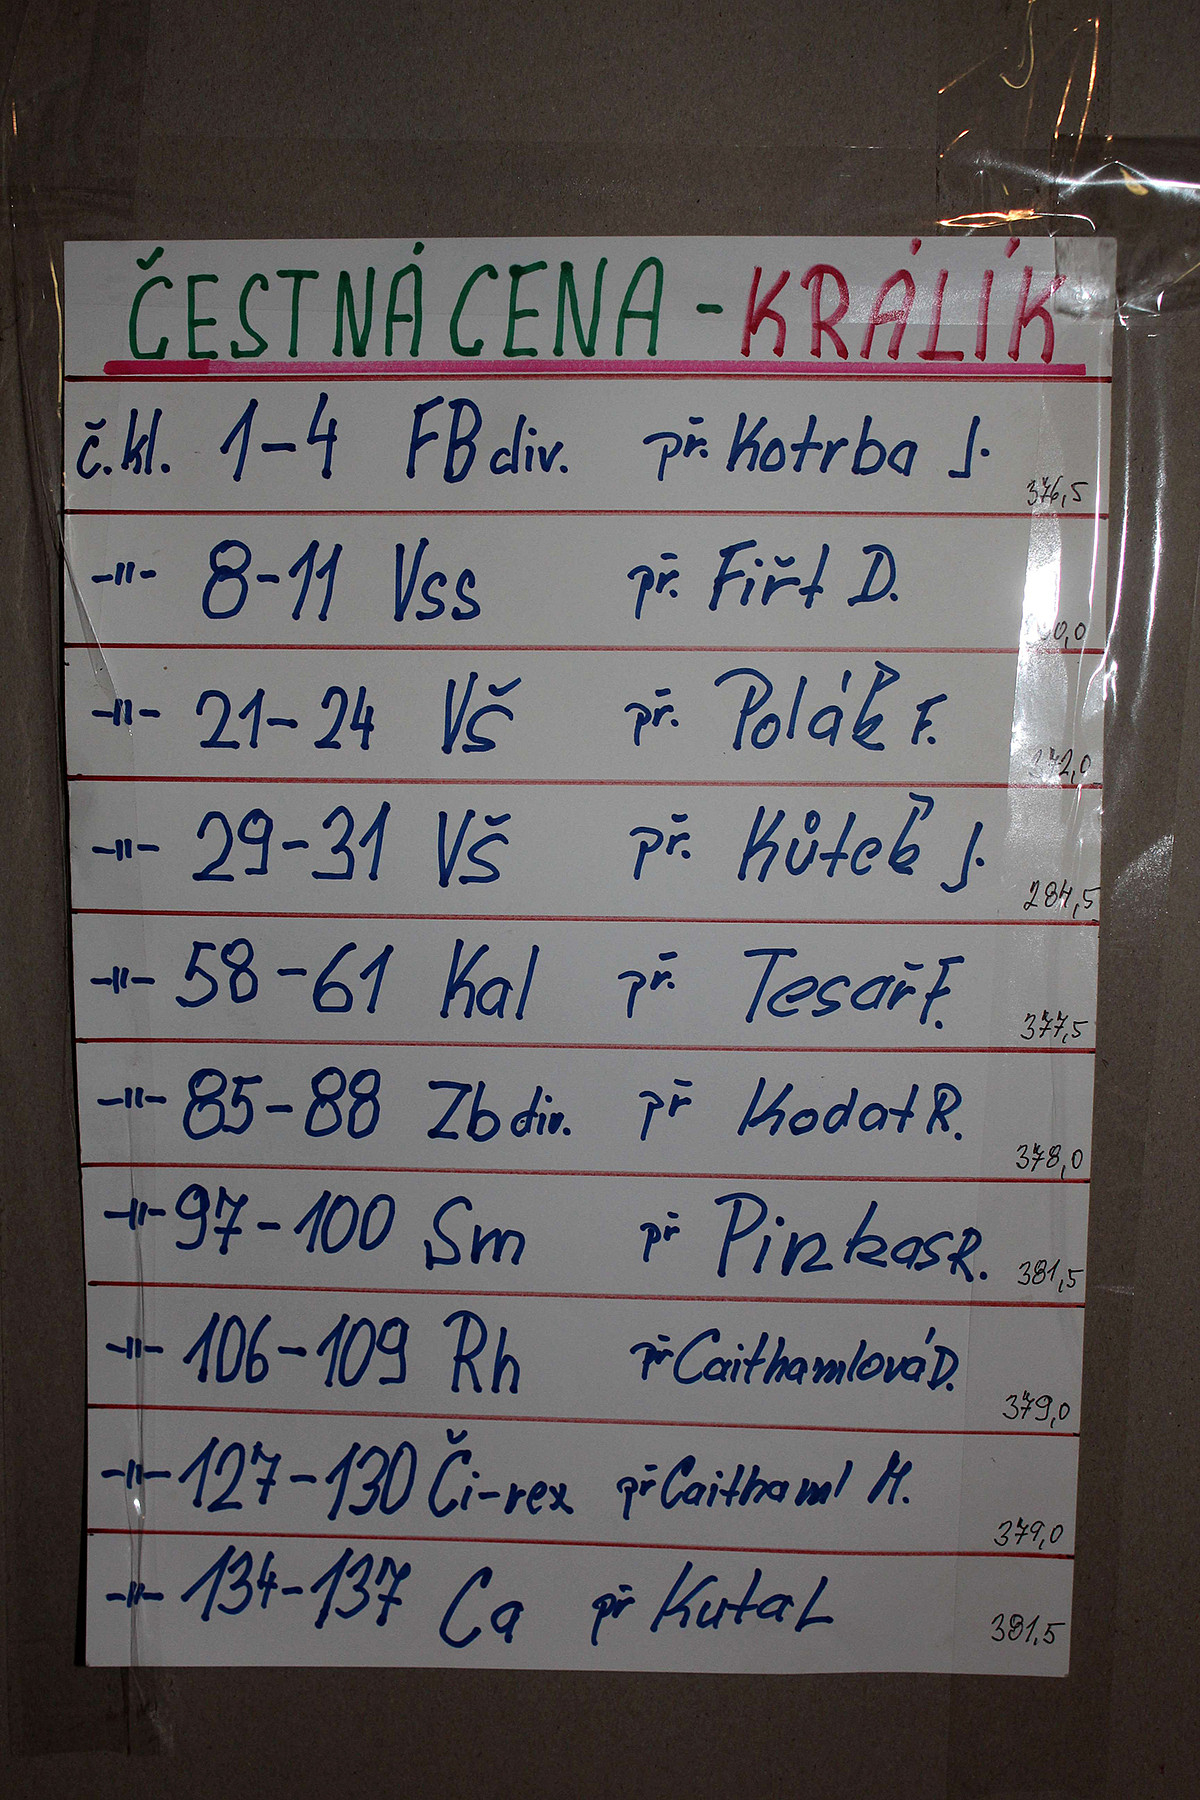 ČESTNÁ CENA - KRÁLÍK
č.kl. 1-4 FB div. př. Kotrba J. 376,5
-"- 8-11 Vss př. Fiřt D.
-"- 21-24 Vš př. Polák F. 372,0
-"- 29-31 Vš př. Kůtek J. 284,5
-"- 58-61 Kal př. Tesař F. 377,5
-"- 85-88 Zb div. př Kodat R. 378,0
-"- 97-100 Sm př Pinkas R. 381,5
-"- 106-109 Rh př Caithamlová D. 379,0
-"- 127-130 Či-rex př Caithaml M. 379,0
-"- 134-137 Ca př Kuta L 381,5